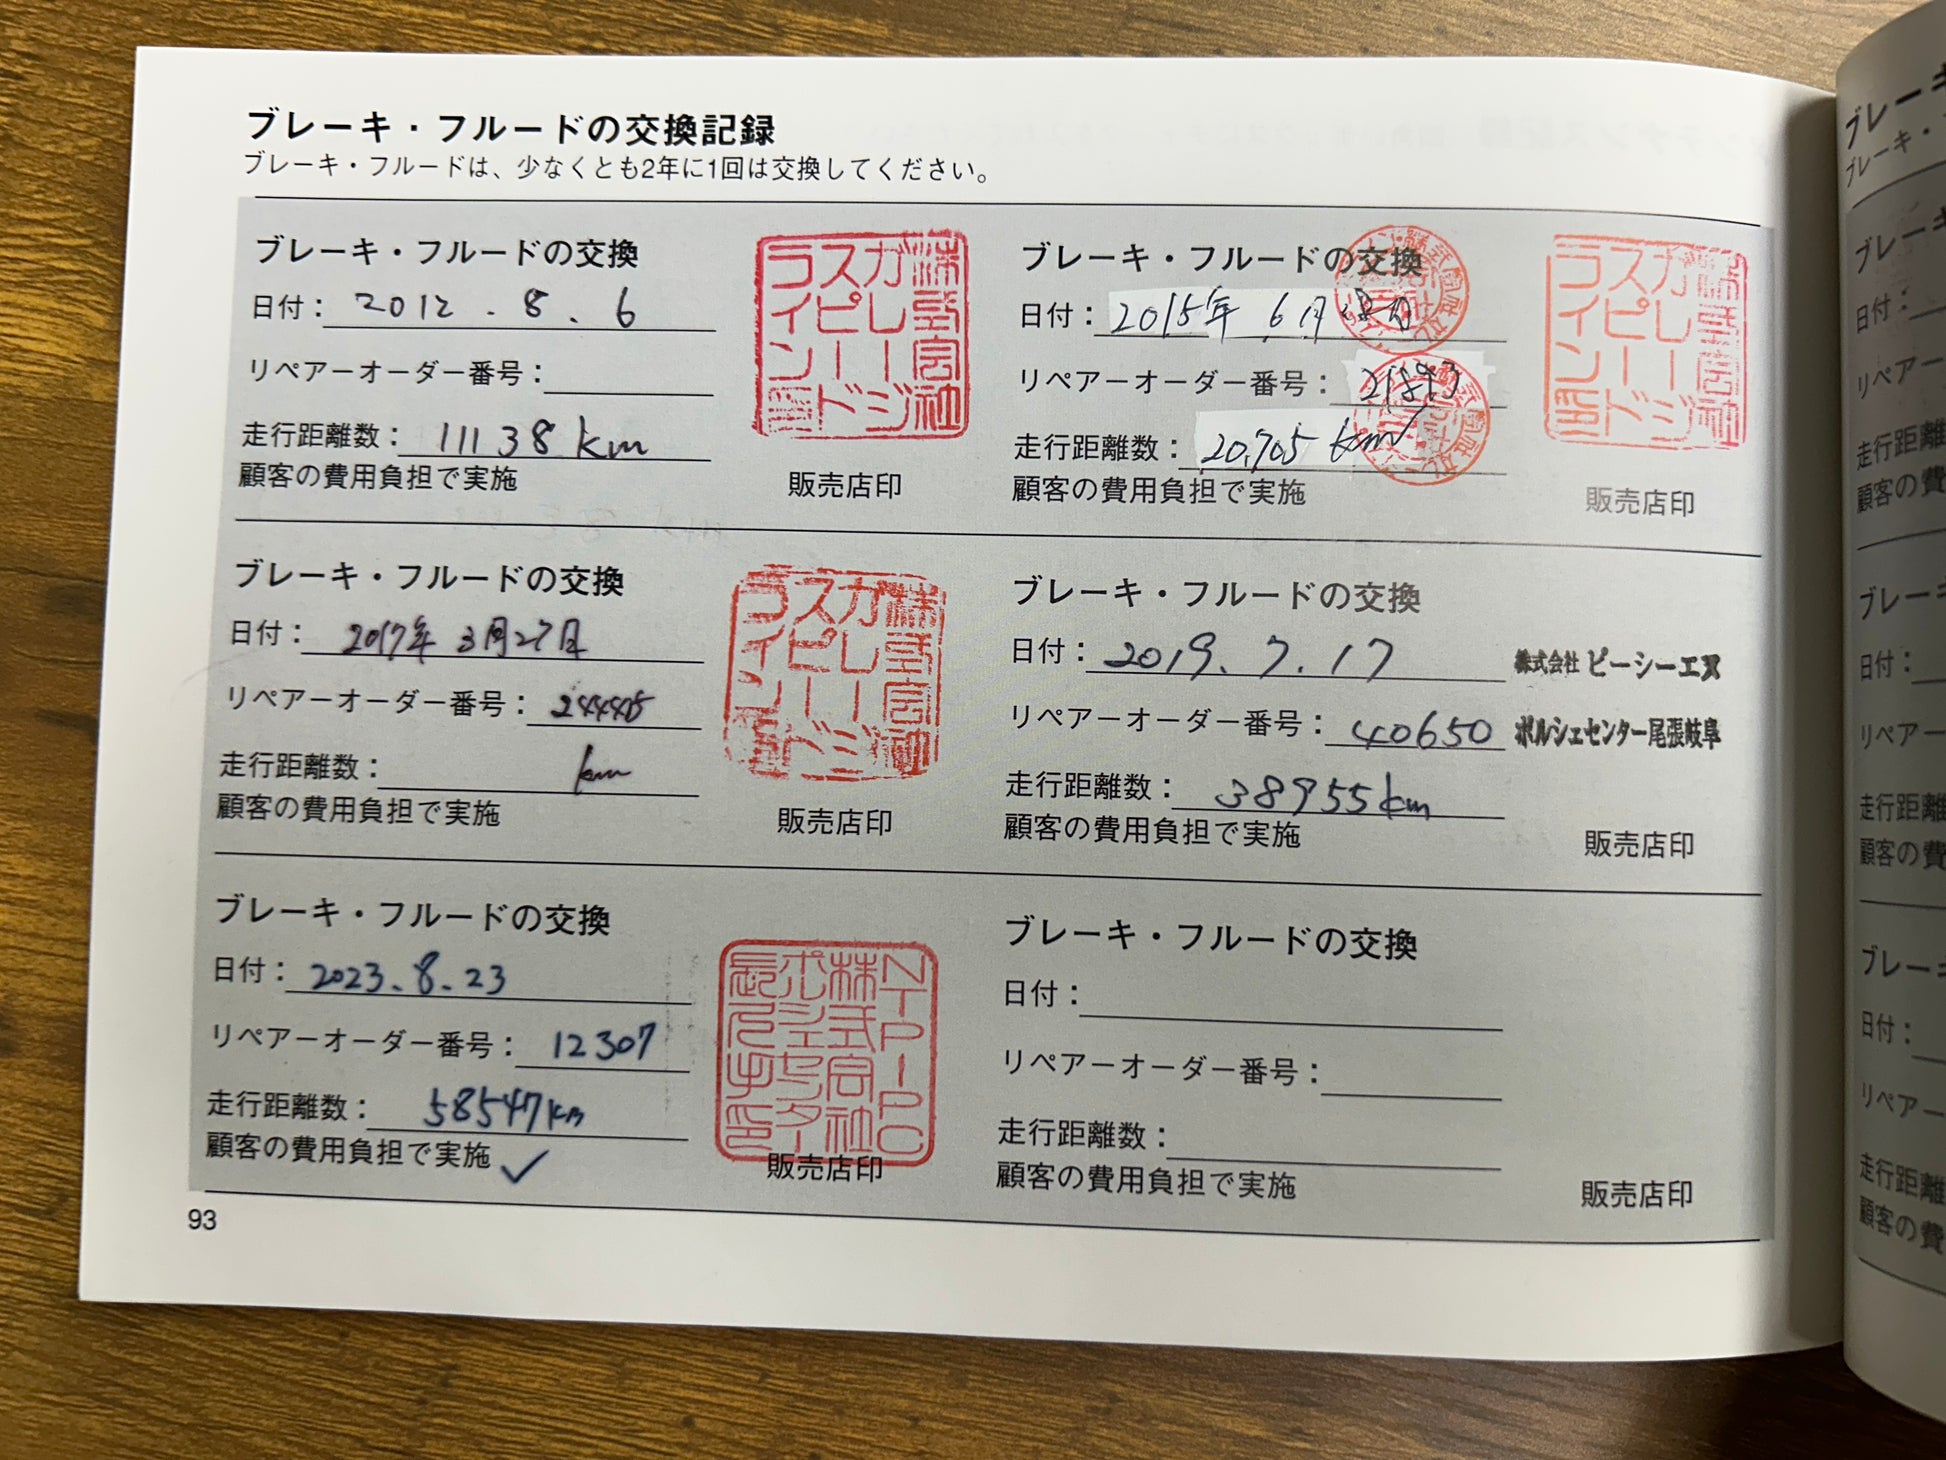 ブレーキ・フルードの交換記録
ブレーキ・フルードは、少なくとも2年に1回は交換してください。
ブレーキ・フルードの交換
日付：2012.8.6
リペアーオーダー番号：
走行距離数：11138km
顧客の費用負担で実施
株式会社ガレージスピードライン印
販売店印
ブレーキ・フルードの交換
日付：2015年6月
リペアーオーダー番号：21893
走行距離数：20,705km
顧客の費用負担で実施
株式会社ガレージスピードライン印
販売店印
ブレーキ・フルードの交換
日付：2017年3月27日
リペアーオーダー番号：
走行距離数：km
顧客の費用負担で実施
株式会社ガレージスピードライン印
販売店印
ブレーキ・フルードの交換
日付：2019.7.17
リペアーオーダー番号：40650
走行距離数：38955km
顧客の費用負担で実施
株式会社ピーシーエヌ
ポルシェセンター尾張岐阜
販売店印
ブレーキ・フルードの交換
日付：2023.8.23
リペアーオーダー番号：12307
走行距離数：58547km
顧客の費用負担で実施 ✓
NTPIPPC株式会社ポルシェセンター
販売店印
ブレーキ・フルードの交換
日付：
リペアーオーダー番号：
走行距離数：
顧客の費用負担で実施
販売店印
93
ブレーキ
ブレーキ・
ブレーキ
日付：
リペアー
走行距離
顧客の費
ブレーキ
日付：
リペアー
走行距離
顧客の費
ブレーキ
日付：
リペアー
走行距離
顧客の費